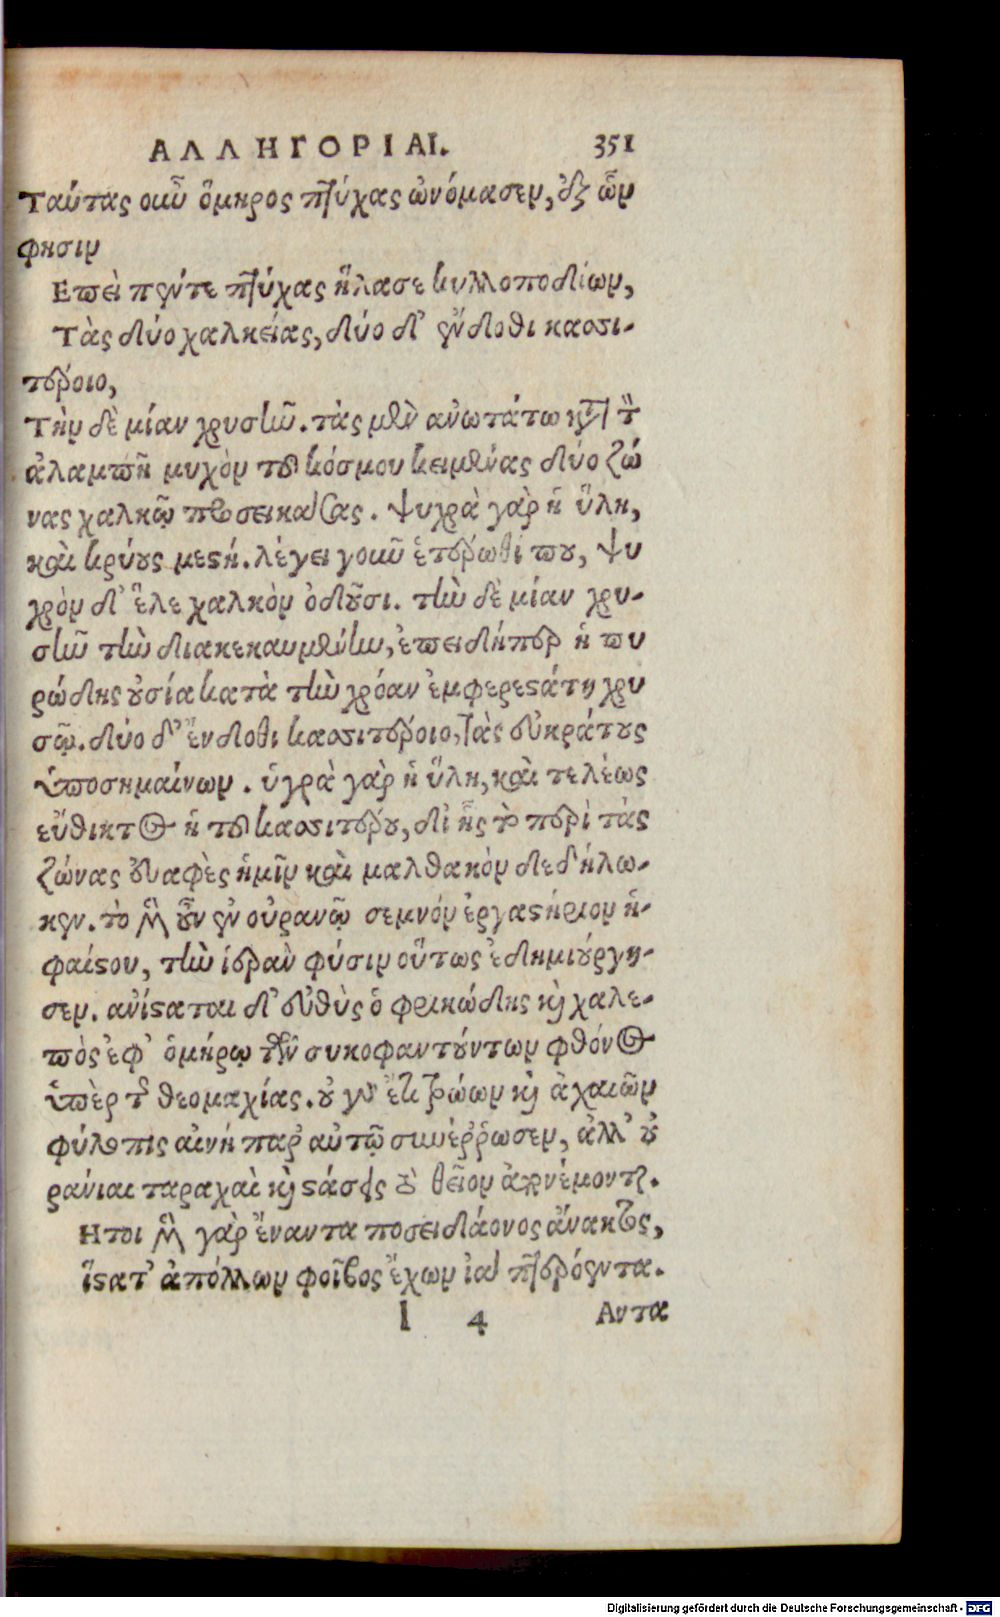 ΑΛΛΗΓΟΡΙΑΙ. 351
Ταύτας οὖν ὅμηρος πτύχας ὠνόμασεν, ἐξ ὧν
φησιν
Επεὶ πέντε πτύχας ἤλασε κυλλοποδίων,
Τὰς δύο χαλκείας, δύο δ' ἔνδοθι κασσι-
τέροιο,
Τὴν δὲ μίαν χρυσῆν. τὰς μὲν ἀνωτάτω κατὰ τὸν
ἀλαμπῆ μυχὸν τοῦ κόσμου κειμένας δύο ζώ
νας χαλκῷ προσεικάσας. ψυχρὰ γὰρ ἡ ὕλη,
καὶ κρύους μεστή. λέγει γοῦν ἑτέρωθί που, ψυ
χρὸν δ' ἕλε χαλκὸν ὀδοῦσι. τὴν δὲ μίαν χρυ-
σῆν τὴν διακεκαυμένην, ἐπειδήπερ ἡ πυ
ρώδης οὐσία κατὰ τὴν χρόαν ἐμφερεστάτη χρυ
σῷ. δύο δ' ἔνδοθι κασσιτέροιο, τὰς εὐκράτους
ὑποσημαίνων. ὑγρὰ γὰρ ἡ ὕλη, καὶ τελέως
εὔθικτος ἡ τοῦ κασσιτέρου, δι' ἧς τὸ περὶ τὰς
ζώνας εὐαφὲς ἡμῖν καὶ μαλθακὸν δεδήλω-
κεν. τὸ μὲν οὖν ἐν οὐρανῷ σεμνὸν ἐργαστήριον ἡ-
φαίστου, τὴν ἱερὰν φύσιν οὕτως ἐδημιούργη-
σεν. ἀνίσταται δ' εὐθὺς ὁ φρικώδης καὶ χαλε-
πὸς ἐφ' ὁμήρῳ τῶν συκοφαντούντων φθόνος
ὑπὲρ τῆς θεομαχίας. οὐ γὰρ ἔτι τρώων καὶ ἀχαιῶν
φύλοπις αἰνὴ παρ' αὐτῷ συνέῤῥωσεν, ἀλλ' οὐ
ράνιαι ταραχαὶ καὶ στάσεις τὸ θεῖον ἐπινέμονται.
Ητοι μὲν γὰρ ἔναντα ποσειδάονος ἄνακτος,
ἵστατ' ἀπόλλων φοῖβος ἔχων ἰὰ πτερόεντα.
l 4 Αντα
Digitalisierung gefördert durch die Deutsche Forschungsgemeinschaft - DFG